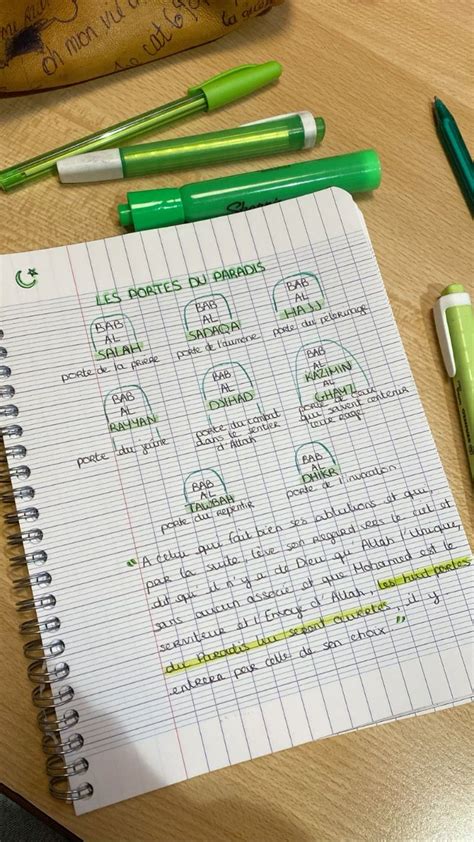 oh mon vi
LES PORTES DU PARADIS
BAB
AL
SALAH
porte de la prière
BAB
AL
SADAQA
porte de l'aumône
BAB
AL
HAJJ
porte du pelerinage
BAB
AL
RAYYAN
porte du jeûne
BAB
AL
DJIHAD
porte du combat
dans le sentier
d'Allah
BAB
AL
KAZIMIN
AL
GHAYZ
porte de ceux
qui savent contenir
leur rage
BAB
AL
TAWBAH
porte du repentir
BAB
AL
DHIKR
porte de l'invocation
" A celui qui fait bien ses ablutions et qui,
par la suite, lève son regard vers le ciel et
dit qu'il n'y a de Dieu qu'Allah l'Unique,
sans aucun associé et que Mohamed est le
serviteur et l'Envoyé d'Allah, les huit portes
du Paradis lui seront ouvertes, il y
entrera par celle de son choix "
Sharpie